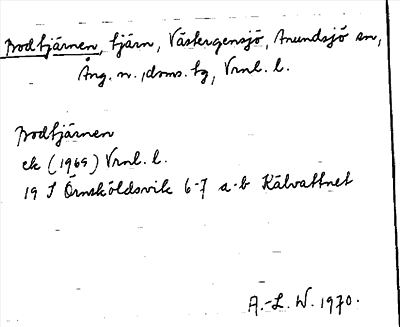 Brodtjärnen, tjärn, Västergensjö, Anundsjö sn,
Ång. n., doms. tg, Vrnl. l.
Brodtjärnen
ek (1969) Vrnl. l.
19 I Örnsköldsvik 6-7 a-b Kälvattnet
A.-L. W. 1970.